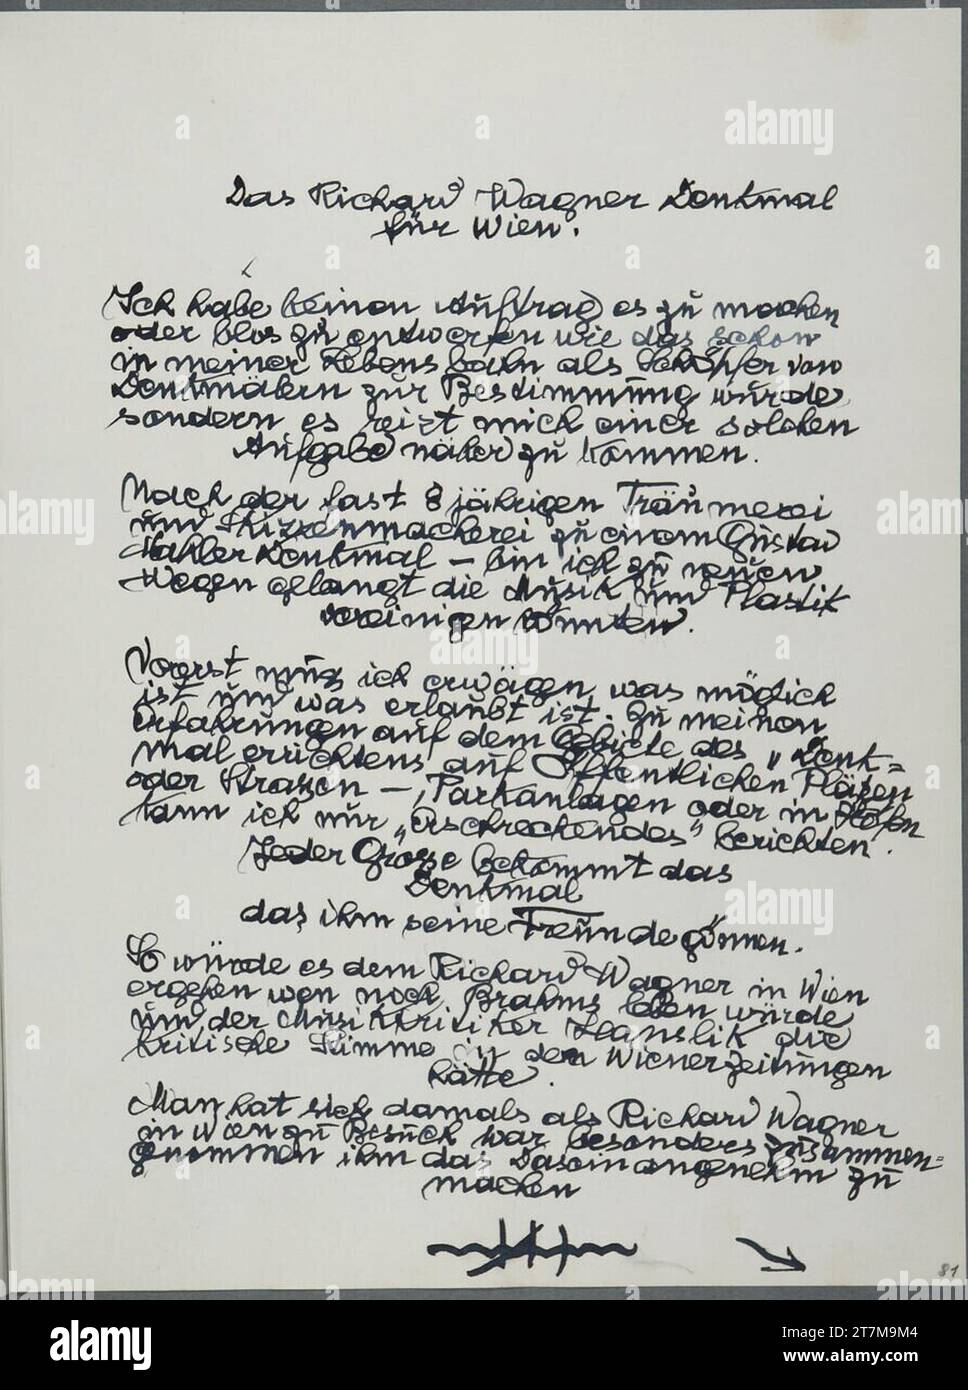 Das Richard Wagner Denkmal
für Wien.
Ich habe keinen Auftrag es zu machen
oder blos zu entwerfen wie das schon
in meiner Lebensbahn als Schöpfer von
Denkmälern zur Bestimmung wurde
sondern es reizt mich einer solchen
Aufgabe näher zu kommen.
Nach der fast 8 jährigen Träumerei
und Skizzenmacherei zu einem Gustav
Mahler Denkmal – bin ich zu neuen
Wegen gelangt die Musik und Plastik
vereinigen könnten.
Vorerst muss ich erwägen was möglich
ist und was erlaubt ist. Zu meinen
Erfahrungen auf dem Gebiete des "Denk=
mal errichtens auf Öffentlichen Plätzen
oder Strassen –, Parkanlagen oder in Höfen
kann ich nur "erschreckendes" berichten.
Jeder Grosse bekommt das
Denkmal
das ihm seine Freunde gönnen.
So würde es dem Richard Wagner in Wien
ergehen wen noch Brahms leben würde
und der Musikkritiker Hanslik die
kritische Stimme in den Wienerzeitungen
hätte.
Man hat sich damals als Richard Wagner
in Wien zu Besuch war besonders zusammen=
genommen ihm das Dasein angenehm zu
machen
81
alamy
Image ID: 2T7M9M4
www.alamy.com